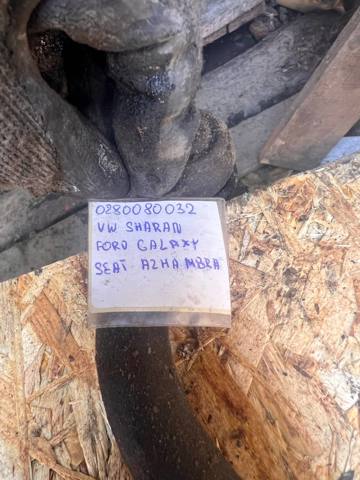 0280080032
VW SHARAN
FORD GALAXY
SEAT AZHAMBRA